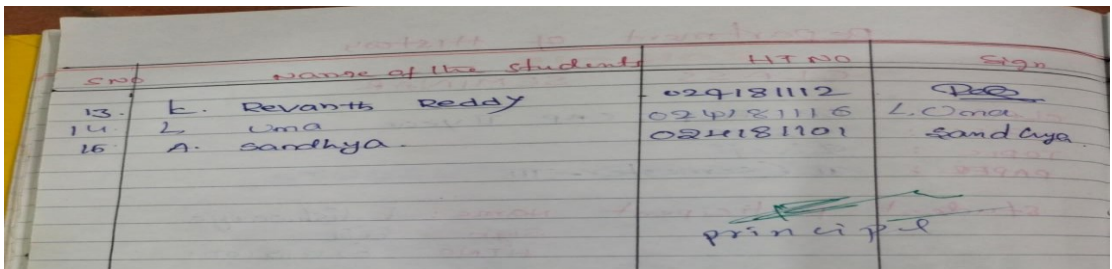 S NO Name of the students HT NO Sign
13. K. Revanth Reddy 024181112
14 L Uma 024181116 L. Uma
15 A. Sandhya. 024181101 Sandhya.
principl